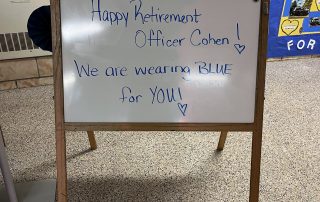 Happy Retirement
Officer Cohen!
We are wearing BLUE
for YOU!
FOR